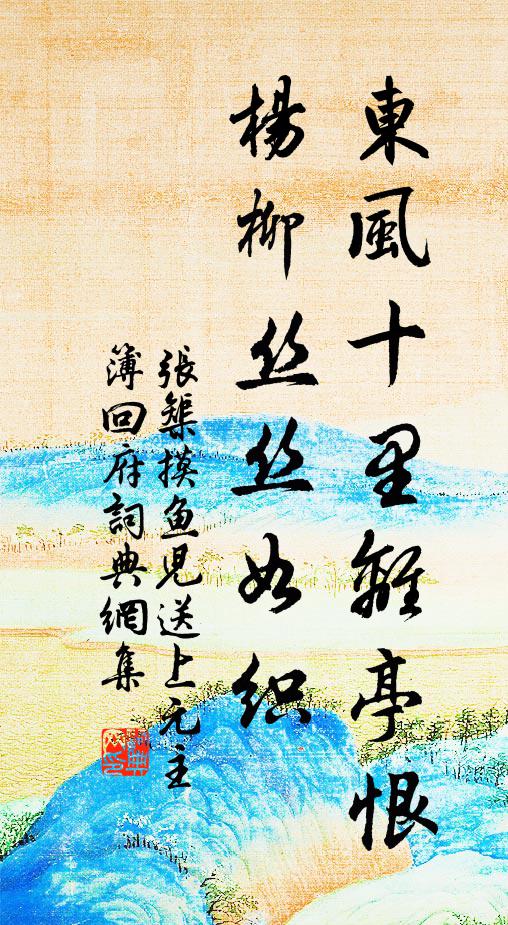 東風十里離亭恨
楊柳丝丝如织
張榘摸鱼児送上元主
簿回府詞典網集